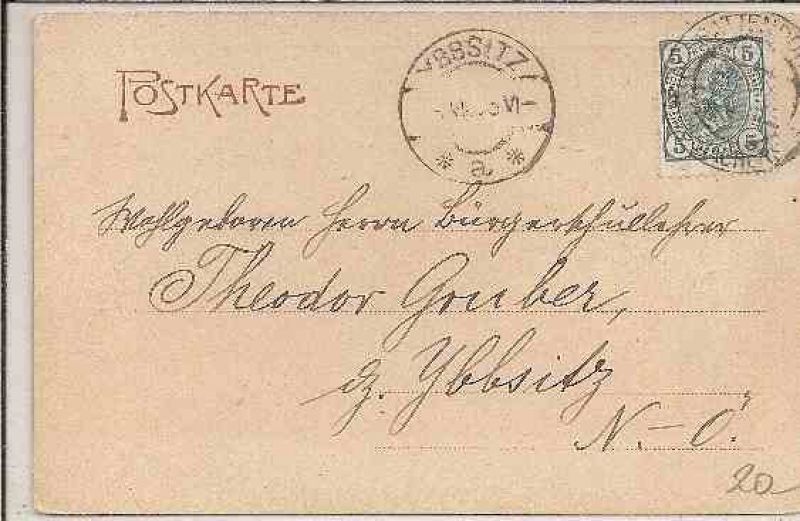 POSTKARTE
YBBSITZ
VI
* a *
5 5
5 5
Wohlgeboren Herrn Bürgerschullehrer
Theodor Gruber,
z. Ybbsitz
N.-Ö.
20